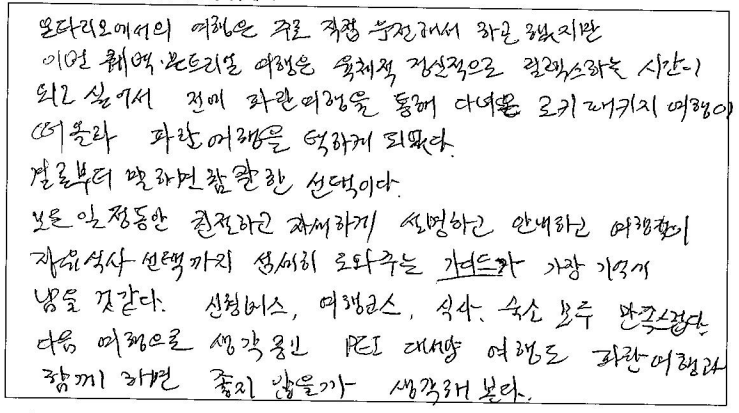 온타리오에서의 여행은 주로 직접 운전해서 하곤 했지만
이번 퀘벡·몬트리얼 여행은 육체적 정신적으로 릴렉스하는 시간이
되고 싶어서 전에 파란여행을 통해 다녀온 로키패키지 여행이
떠올라 파란여행을 택하게 되었다.
결론부터 말하면 참 잘한 선택이다.
모든 일정동안 친절하고 자세하게 설명하고 안내하고 여행객의
자유식사 선택까지 섬세히 도와주는 가이드가 가장 기억에
남을 것같다. 신형버스, 여행코스, 식사, 숙소 모두 만족스럽다.
다음 여행으로 생각중인 PEI 대서양 여행도 파란여행과
함께 하면 좋지 않을까 생각해 본다.